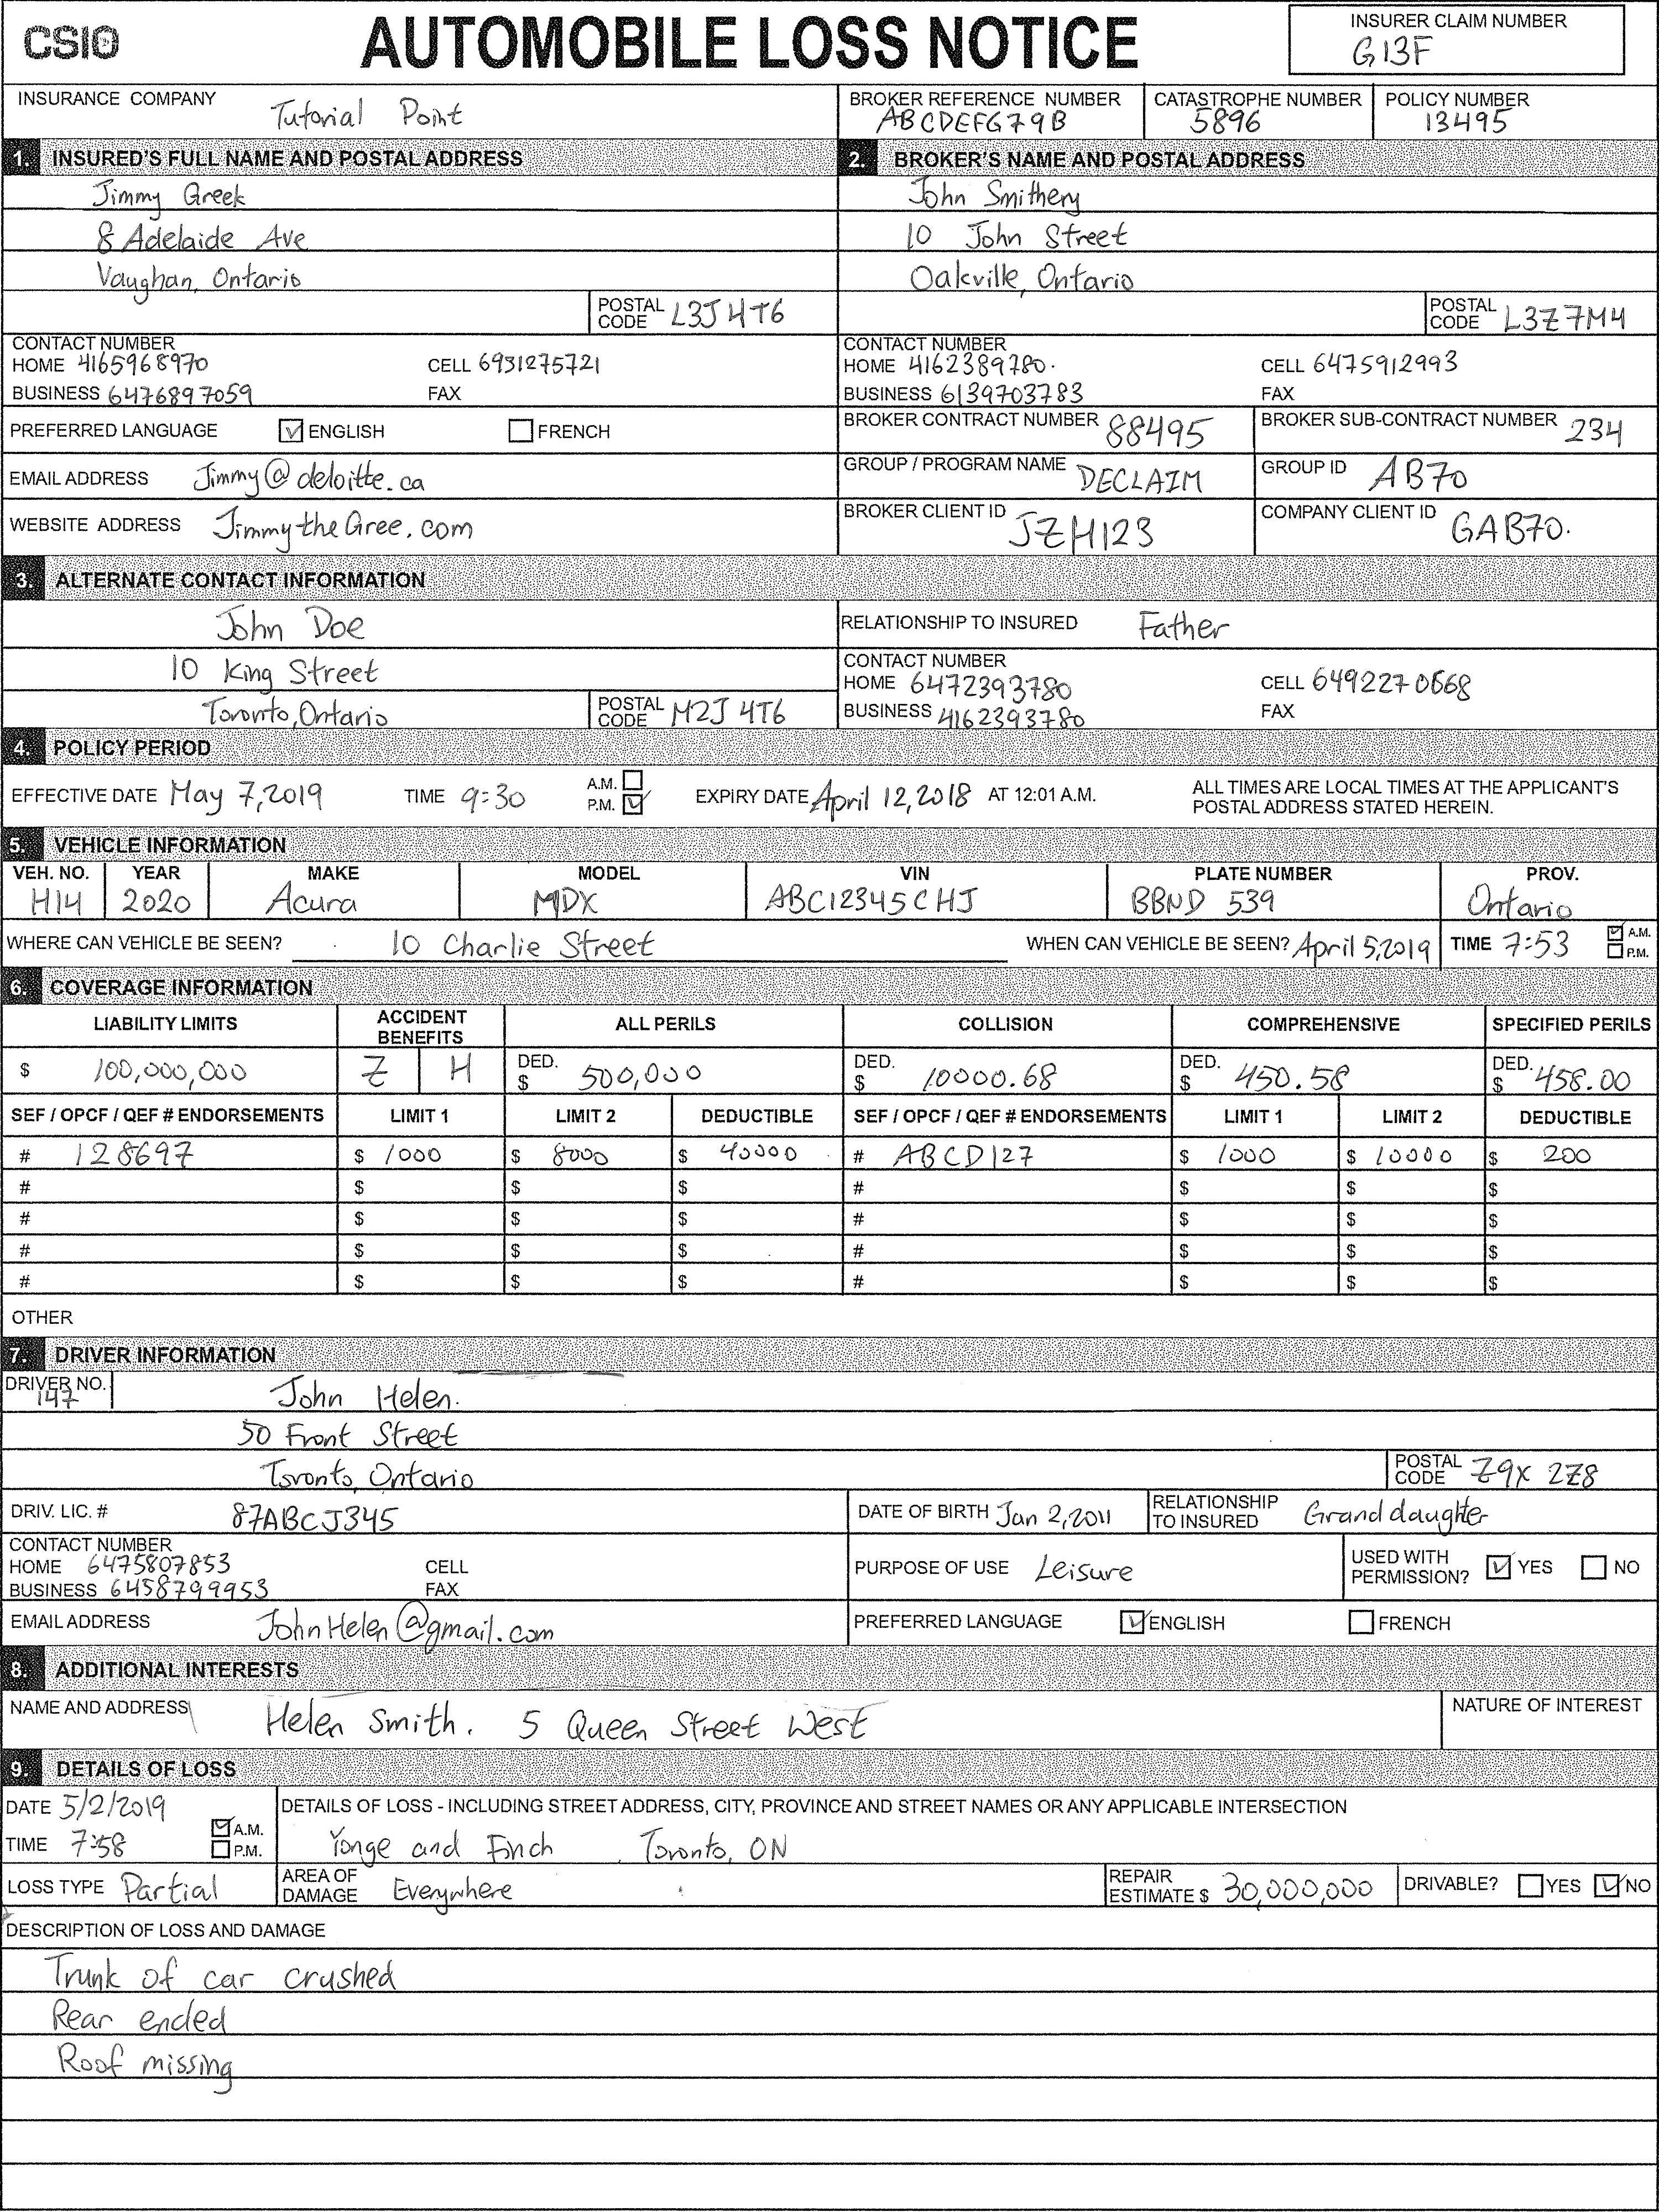 CSIO
AUTOMOBILE LOSS NOTICE
INSURER CLAIM NUMBER
G13F
INSURANCE COMPANY Tutorial Point
BROKER REFERENCE NUMBER ABCDEFG79B
CATASTROPHE NUMBER 5896
POLICY NUMBER 13495
1. INSURED'S FULL NAME AND POSTAL ADDRESS
Jimmy Greek
8 Adelaide Ave
Vaughan, Ontario
POSTAL CODE L3J4T6
CONTACT NUMBER
HOME 4165968970 CELL 6931275721
BUSINESS 6476897059 FAX
PREFERRED LANGUAGE ENGLISH FRENCH
EMAIL ADDRESS Jimmy@deloitte.ca
WEBSITE ADDRESS JimmytheGree.com
2. BROKER'S NAME AND POSTAL ADDRESS
John Smithery
10 John Street
Oakville, Ontario
POSTAL CODE L3Z7M4
CONTACT NUMBER
HOME 4162389780. CELL 6475912993
BUSINESS 6139703783 FAX
BROKER CONTRACT NUMBER 88495 BROKER SUB-CONTRACT NUMBER 234
GROUP / PROGRAM NAME DECLAIM GROUP ID AB70
BROKER CLIENT ID JZH123 COMPANY CLIENT ID GAB70.
3. ALTERNATE CONTACT INFORMATION
John Doe
10 King Street
Toronto, Ontario POSTAL CODE M2J 4T6
RELATIONSHIP TO INSURED Father
CONTACT NUMBER
HOME 6472393780 CELL 6492270668
BUSINESS 4162393780 FAX
4. POLICY PERIOD
EFFECTIVE DATE May 7,2019 TIME 9:30 A.M. P.M. EXPIRY DATE April 12,2018 AT 12:01 A.M. ALL TIMES ARE LOCAL TIMES AT THE APPLICANT'S POSTAL ADDRESS STATED HEREIN.
5. VEHICLE INFORMATION
VEH. NO. YEAR MAKE MODEL VIN PLATE NUMBER PROV.
H14 2020 Acura MDX ABC12345CHJ BBND 539 Ontario
WHERE CAN VEHICLE BE SEEN? 10 Charlie Street WHEN CAN VEHICLE BE SEEN? April 5,2019 TIME 7:53 A.M. P.M.
6. COVERAGE INFORMATION
LIABILITY LIMITS ACCIDENT BENEFITS ALL PERILS COLLISION COMPREHENSIVE SPECIFIED PERILS
$ 100,000,000 Z H DED. $ 500,000 DED. $ 10000.68 DED. $ 450.58 DED. $ 458.00
SEF / OPCF / QEF # ENDORSEMENTS LIMIT 1 LIMIT 2 DEDUCTIBLE SEF / OPCF / QEF # ENDORSEMENTS LIMIT 1 LIMIT 2 DEDUCTIBLE
# 128697 $ 1000 $ 8000 $ 40000 # ABCD127 $ 1000 $ 10000 $ 200
# $ $ $ # $ $ $
# $ $ $ # $ $ $
# $ $ $ # $ $ $
# $ $ $ # $ $ $
OTHER
7. DRIVER INFORMATION
DRIVER NO. 147 John Helen.
50 Front Street
Toronto, Ontario POSTAL CODE Z9X 2Z8
DRIV. LIC. # 87ABCJ345 DATE OF BIRTH Jan 2,2011 RELATIONSHIP TO INSURED Granddaughter
CONTACT NUMBER
HOME 6475807853 CELL
BUSINESS 6458799953 FAX
PURPOSE OF USE Leisure USED WITH PERMISSION? YES NO
EMAIL ADDRESS JohnHelen@gmail.com PREFERRED LANGUAGE ENGLISH FRENCH
8. ADDITIONAL INTERESTS
NAME AND ADDRESS Helen Smith. 5 Queen Street West NATURE OF INTEREST
9. DETAILS OF LOSS
DATE 5/2/2019 DETAILS OF LOSS - INCLUDING STREET ADDRESS, CITY, PROVINCE AND STREET NAMES OR ANY APPLICABLE INTERSECTION
TIME 7:58 A.M. P.M. Yonge and Finch Toronto, ON
LOSS TYPE Partial AREA OF DAMAGE Everywhere REPAIR ESTIMATE $ 30,000,000 DRIVABLE? YES NO
DESCRIPTION OF LOSS AND DAMAGE
Trunk of car crushed
Rear ended
Roof missing